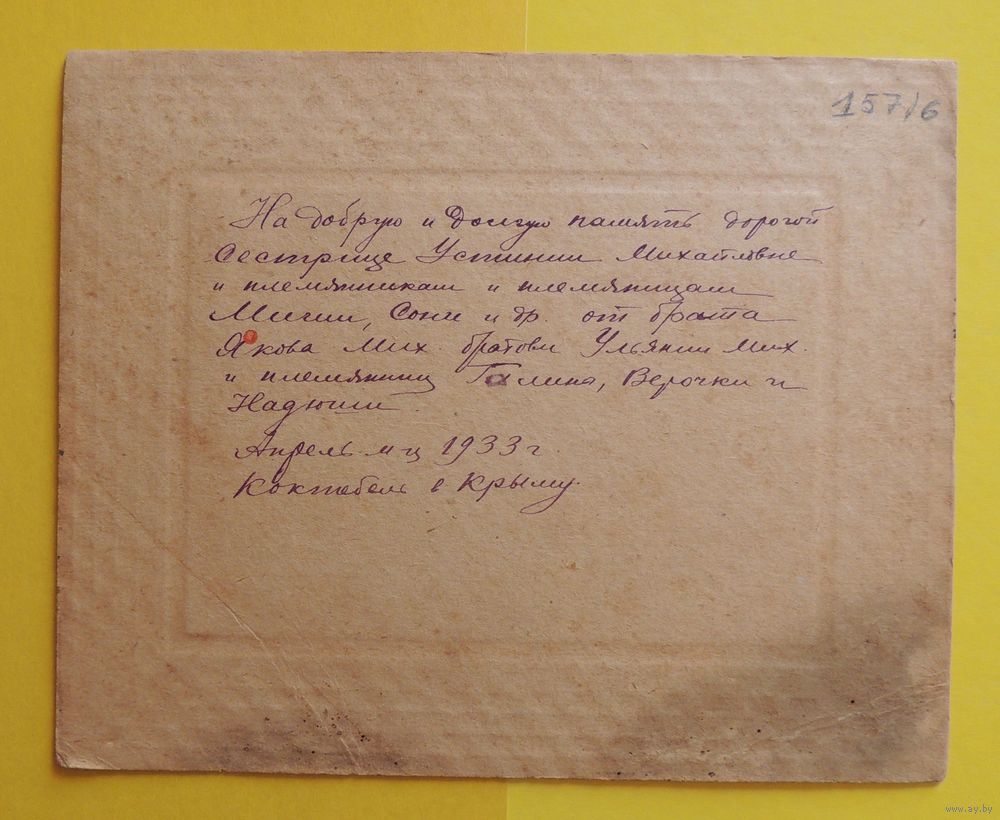 157/6
На добрую и долгую память дорогой
Сестрице Устинии Михайловне
и племянникам и племянницам
Мичии, Сони и др. от брата
Якова Мих. братови Ульянии Мих.
и племянниц Галина, Верочки и
Надюши.
Апрель м-ц 1933 г.
Коктебель в Крыму.
www.ay.by